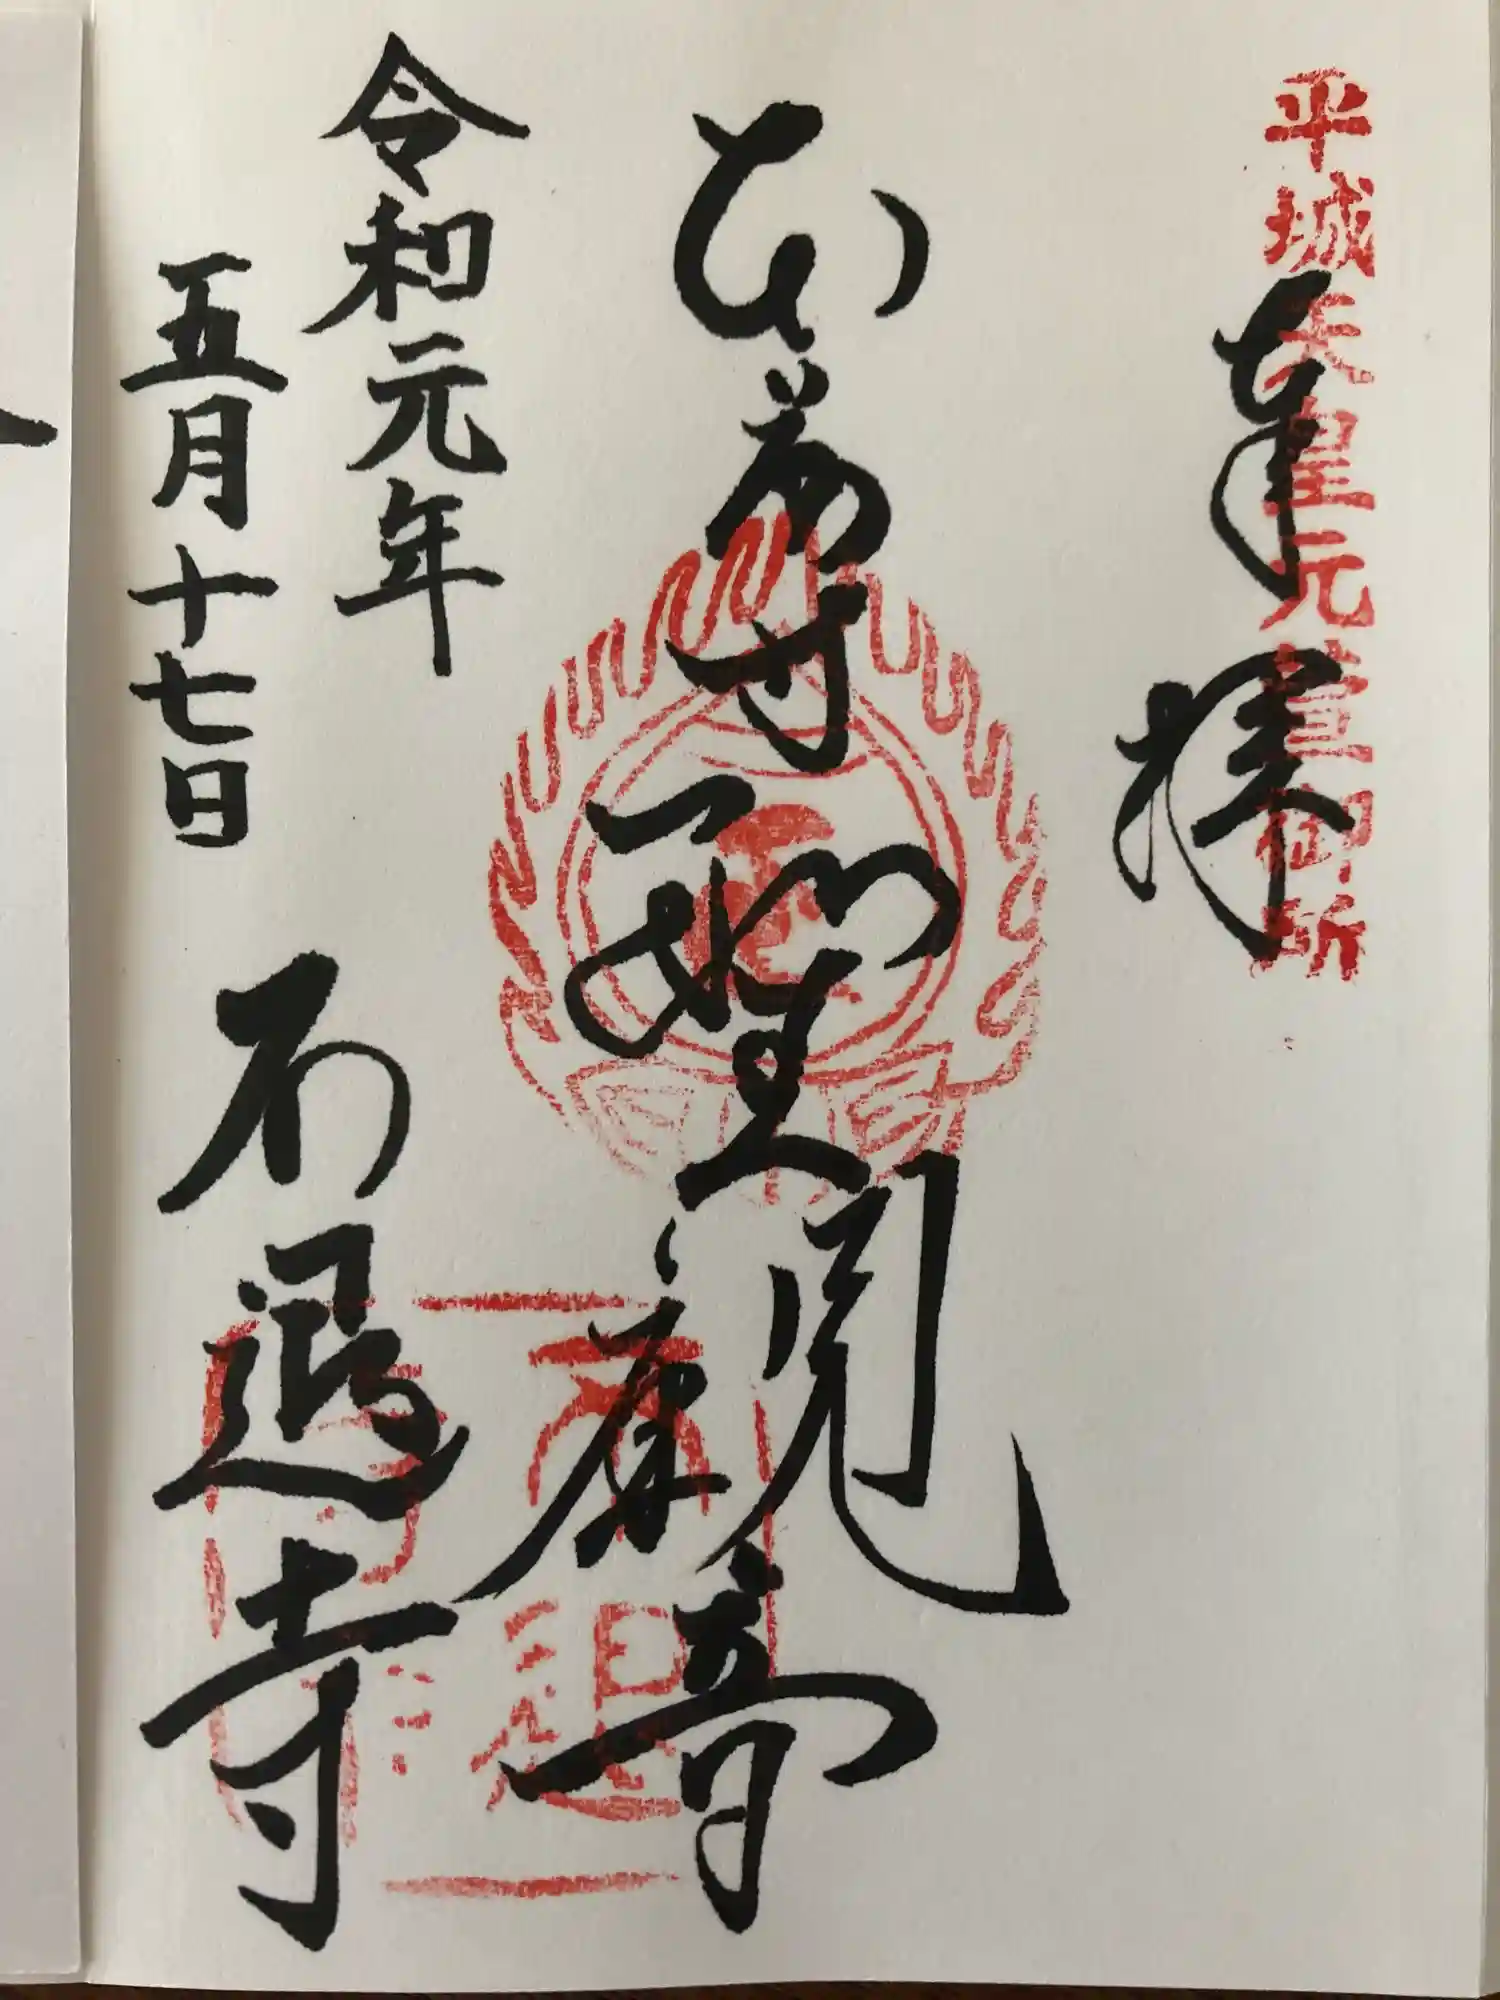 平城天皇元萱御所
奉拝
本尊聖観音
令和元年
五月十七日
不退寺